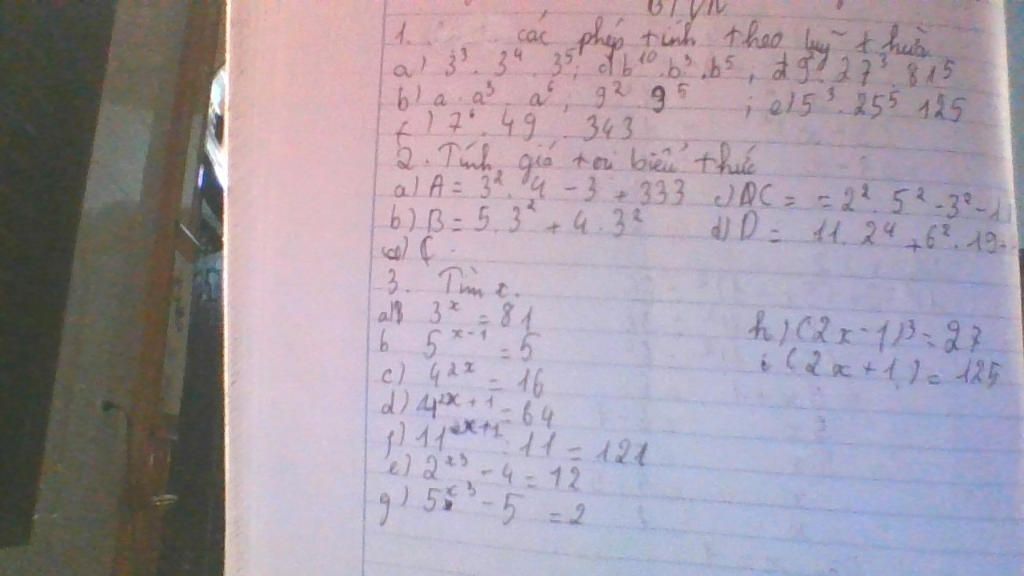 BTVN
1. các phép tính theo luỹ thừa
a) 3³ . 3⁴ . 3⁵ ; b¹⁰ . b³ . b⁵ ; 27³ . 81⁵
b) a . a³ . a⁶ ; 9² . 9⁵ ; e) 5³ . 25⁵ 125
7⁶ . 49 . 343
2. Tính giá trị biểu thức
a) A = 3² . 4 - 3 + 333 c) C = = 2² . 5² - 3² - 1
b) B = 5 . 3² + 4 . 3² d) D = 11 . 2⁴ + 6² . 19
C
3. Tìm x.
a) 3ˣ = 81
b 5ˣ⁻¹ = 5
c) 4²ˣ = 16
d) 4²ˣ⁺¹ = 64
f) 11²ˣ⁺¹ . 11 = 121
e) 2ˣ³ - 4 = 12
g) 5ˣ³ - 5 = 2
h) (2x - 1)³ = 27
i (2x + 1) = 125